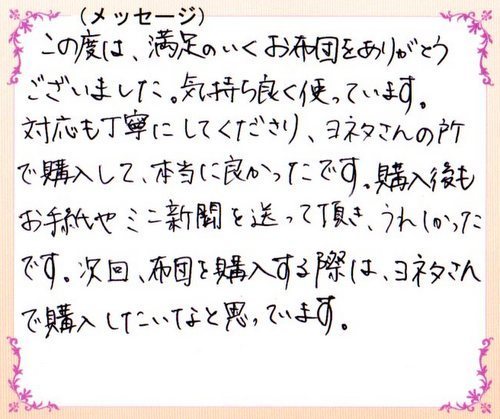 （メッセージ）
この度は、満足のいくお布団をありがとう
ございました。気持ち良く使っています。
対応も丁寧にしてくださり、ヨネタさんの所
で購入して、本当に良かったです。購入後も
お手紙やミニ新聞を送って頂き、うれしかった
です。次回、布団を購入する際は、ヨネタさん
で購入したいなと思っています。